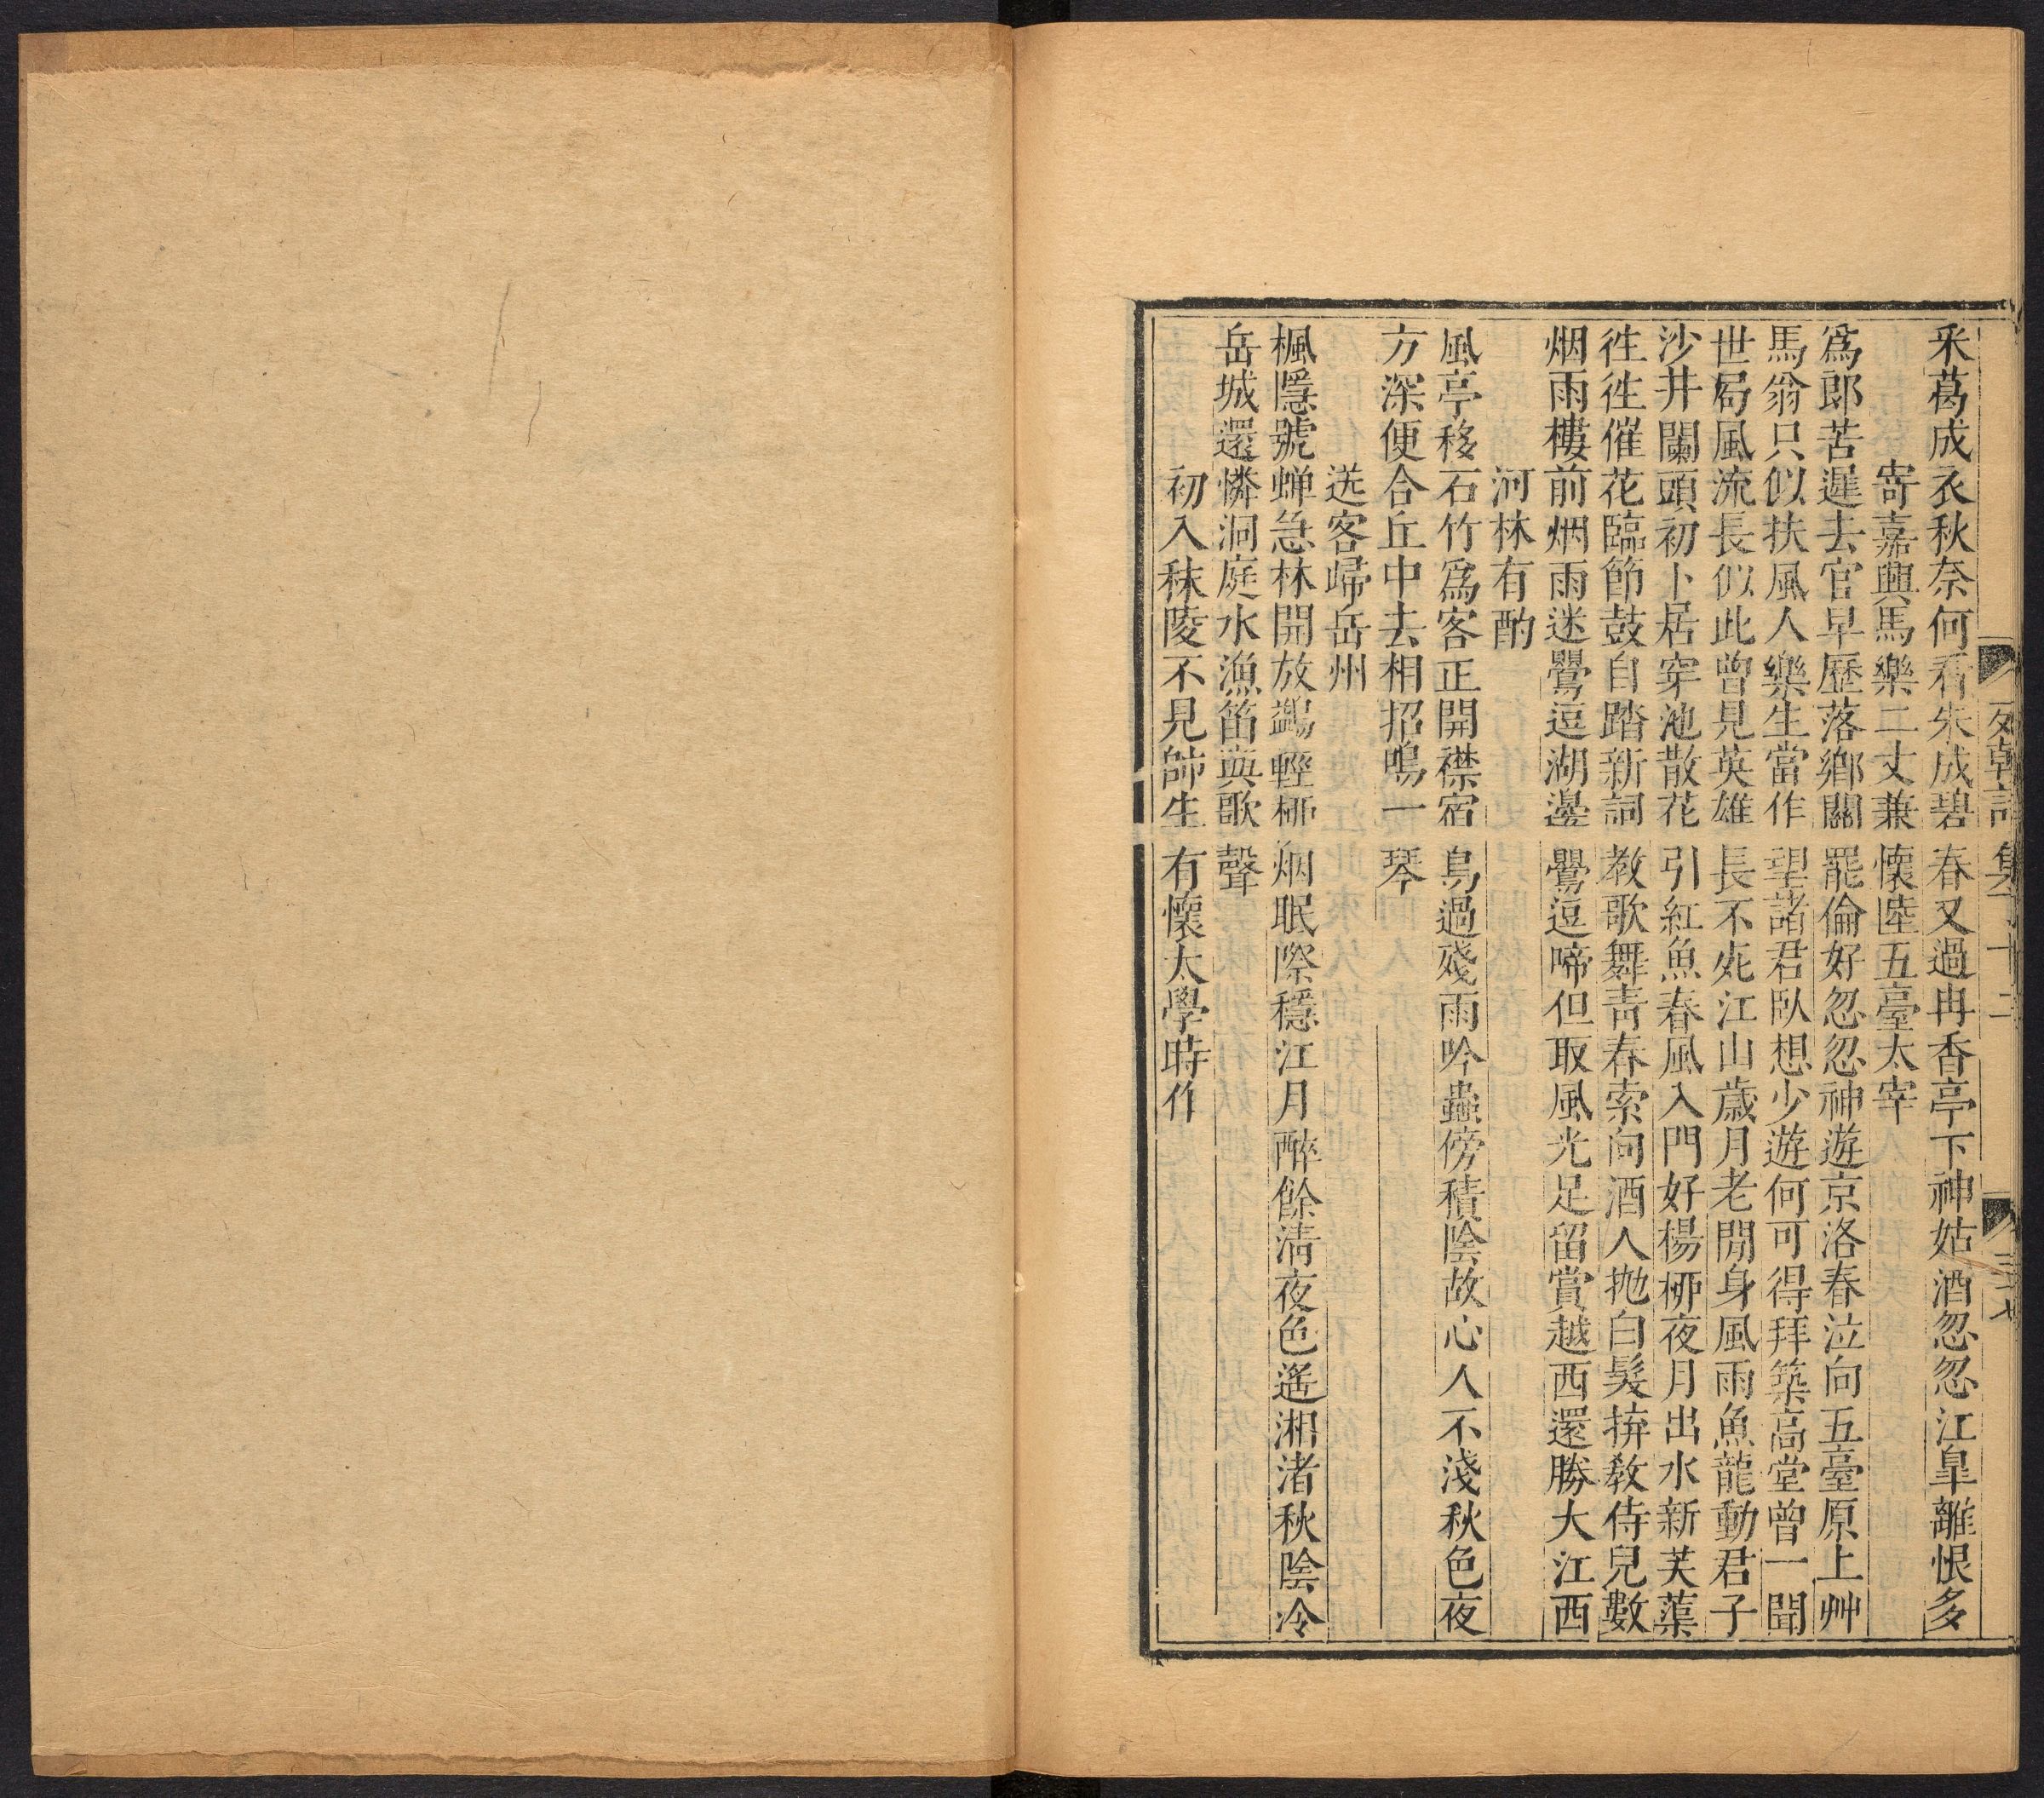 列朝詩集丁十二
采葛成衣秋奈何看朱成碧春又過冉香亭下神姑酒忽忽江臯離恨多
寄嘉興馬樂二丈兼懷陸五臺太宰
爲郎苦遲去官早歷落鄉關罷倫好忽忽神遊京洛春泣向五臺原上艸
馬翁只似扶風人樂生當作望諸君臥想少遊何可得拜築高堂曾一聞
世局風流長似此曾見英雄長不死江山歲月老閒身風雨魚龍動君子
沙井闌頭初卜居穿池散花引紅魚春風入門好楊柳夜月出水新芙蕖
徃徃催花臨節鼓自踏新詞教歌舞青春索向酒人抛白髮拚敎侍兒數
烟雨樓前烟雨迷鸎逗湖邊鸎逗啼但取風光足留賞越西還勝大江西
河林有酌
風亭移石竹爲客正開襟宿鳥過殘雨吟蟲傍積陰故心人不淺秋色夜
方深便合丘中去相招鳴一琴
送客歸岳州
楓隱號蟬急林開放鷁輕柳烟眠際穩江月醉餘清夜色遙湘渚秋陰冷
岳城還憐洞庭水漁笛與歌聲
初入秣陵不見帥生有懷太學時作